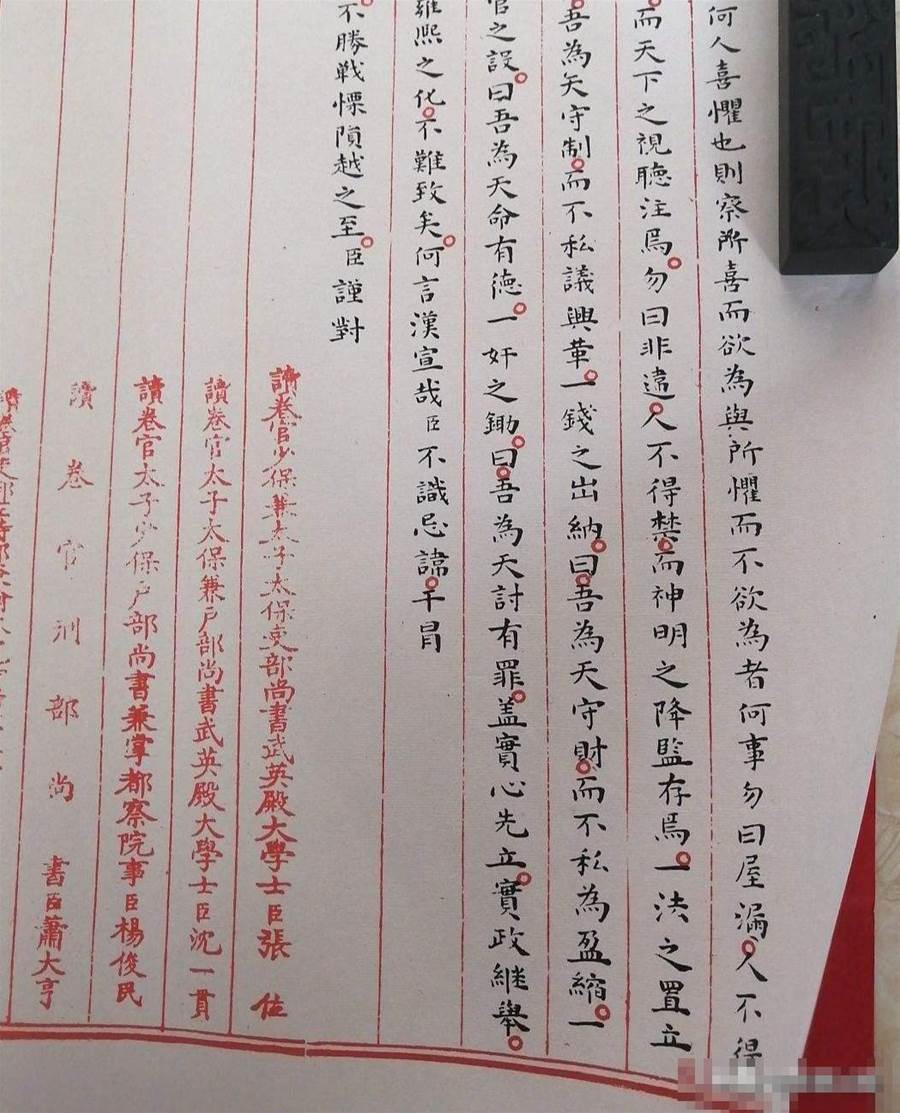 何人喜懼也則察所喜而欲為與所懼而不欲為者何事勿曰屋漏人不得
而天下之視聽注焉勿曰非違人不得禁而神明之降監存焉一法之置立
吾為天守制而不私議興革一錢之出納曰吾為天守財而不私為盈縮一
官之設曰吾為天命有德一奸之鋤曰吾為天討有罪蓋實心先立實政継舉
雍熙之化不難致矣何言漢宣哉臣不識忌諱干冒
不勝戦慄隕越之至臣謹對
讀卷官少保兼太子太保吏部尚書武英殿大學士臣張位
讀卷官太子太保兼户部尚書武英殿大學士臣沈一貫
讀卷官太子少保户部尚書兼掌都察院事臣楊俊民
讀卷官刑部尚書臣蕭大亨
讀卷官吏部